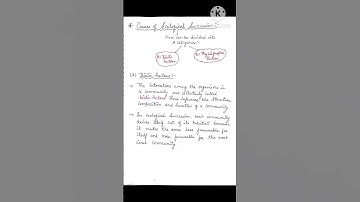 * Causes of Ecological Succession :-
These can be divided into
2 categories :-
(A) Biotic
factors
(B) Physiographic
factors
(A) Biotic factors :-
→ The interactions among the organisms in
a community are collectively called
biotic factors. These influence the structure,
composition and function of a community.
→ In ecological succession, each community
drives itself out of its habitat because
it makes the area less favourable for
itself and more favourable for the next
seral community.